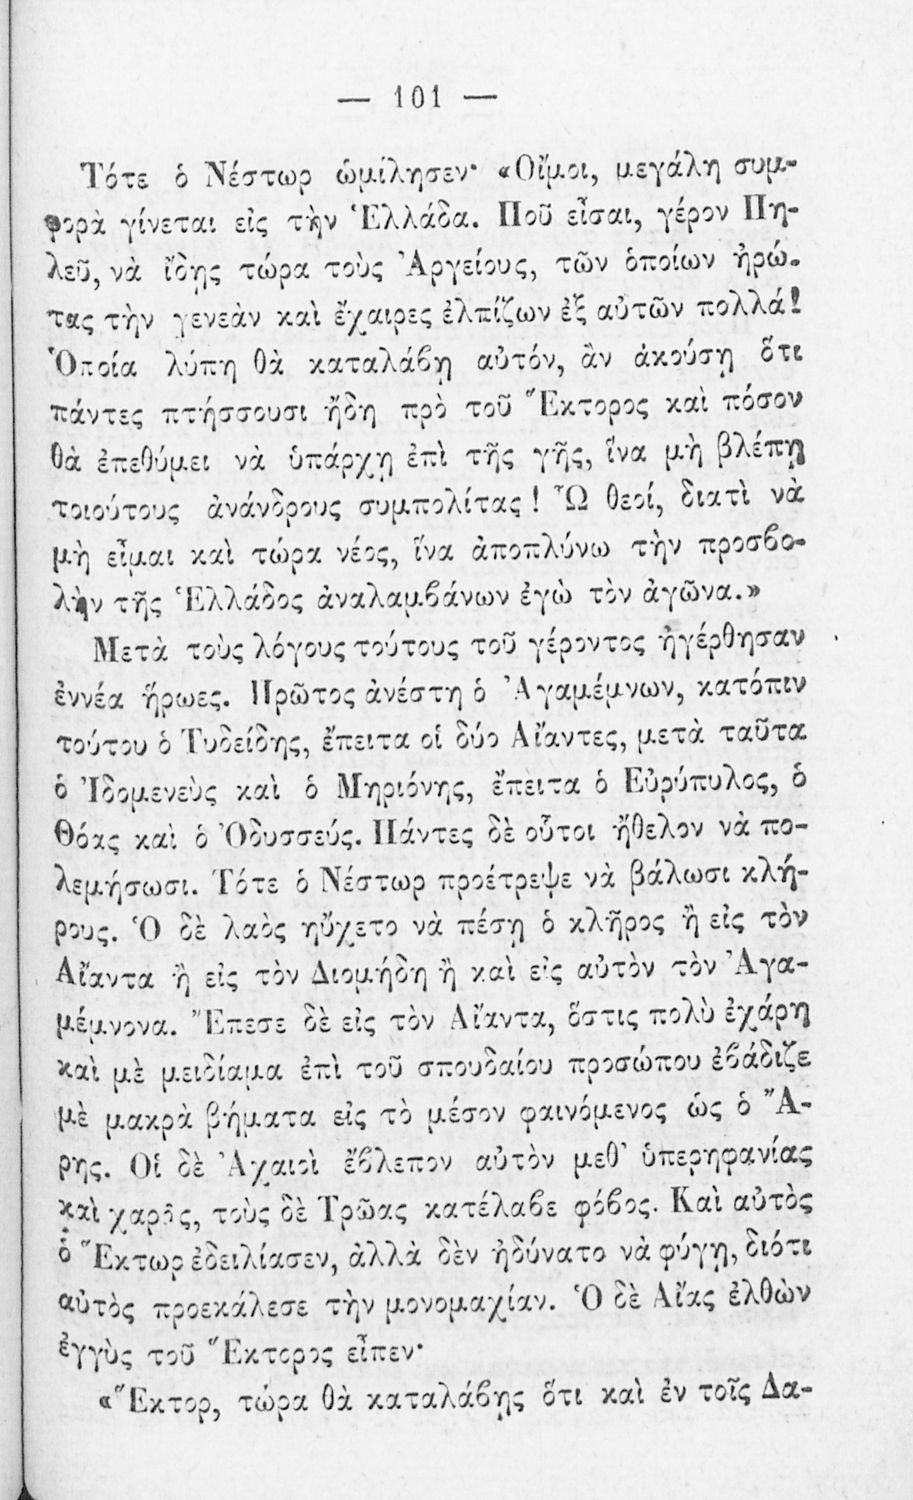 — 101 —
Τότε ὁ Νέστωρ ὡμίλησεν· «Οἴμοι, μεγάλη συμ-
φορὰ γίνεται εἰς τὴν Ἑλλάδα. Ποῦ εἶσαι, γέρον Πη-
λεῦ, νὰ ἴδῃς τώρα τοὺς Ἀργείους, τῶν ὁποίων ἠρώ-
τας τὴν γενεὰν καὶ ἔχαιρες ἐλπίζων ἐξ αὐτῶν πολλά!
Ὁποία λύπη θὰ καταλάβῃ αὐτόν, ἂν ἀκούσῃ ὅτι
πάντες πτήσσουσι ἤδη πρὸ τοῦ Ἕκτορος καὶ πόσον
θὰ ἐπεθύμει νὰ ὑπάρχῃ ἐπὶ τῆς γῆς, ἵνα μὴ βλέπῃ
τοιούτους ἀνάνδρους συμπολίτας! Ὦ θεοί, διατὶ νὰ
μὴ εἶμαι καὶ τώρα νέος, ἵνα ἀποπλύνω τὴν προσβο-
λὴν τῆς Ἑλλάδος ἀναλαμβάνων ἐγὼ τὸν ἀγῶνα.»
Μετὰ τοὺς λόγους τούτους τοῦ γέροντος ἠγέρθησαν
ἐννέα ἥρωες. Πρῶτος ἀνέστη ὁ Ἀγαμέμνων, κατόπιν
τούτου ὁ Τυδείδης, ἔπειτα οἱ δύο Αἴαντες, μετὰ ταῦτα
ὁ Ἰδομενεὺς καὶ ὁ Μηριόνης, ἔπειτα ὁ Εὐρύπυλος, ὁ
Θόας καὶ ὁ Ὀδυσσεύς. Πάντες δὲ οὗτοι ἤθελον νὰ πο-
λεμήσωσι. Τότε ὁ Νέστωρ προέτρεψε νὰ βάλωσι κλή-
ρους. Ὁ δὲ λαὸς ηὔχετο νὰ πέσῃ ὁ κλῆρος ἢ εἰς τὸν
Αἴαντα ἢ εἰς τὸν Διομήδη ἢ καὶ εἰς αὐτὸν τὸν Ἀγα-
μέμνονα. Ἔπεσε δὲ εἰς τὸν Αἴαντα, ὅστις πολὺ ἐχάρη
καὶ μὲ μειδίαμα ἐπὶ τοῦ σπουδαίου προσώπου ἐβάδιζε
μὲ μακρὰ βήματα εἰς τὸ μέσον φαινόμενος ὡς ὁ Ἄ-
ρης. Οἱ δὲ Ἀχαιοὶ ἔβλεπον αὐτὸν μεθ’ ὑπερηφανίας
καὶ χαρᾶς, τοὺς δὲ Τρῶας κατέλαβε φόβος. Καὶ αὐτὸς
ὁ Ἕκτωρ ἐδειλίασεν, ἀλλὰ δὲν ἠδύνατο νὰ φύγῃ, διότι
αὐτὸς προεκάλεσε τὴν μονομαχίαν. Ὁ δὲ Αἴας ἐλθὼν
ἐγγὺς τοῦ Ἕκτορος εἶπεν·
«Ἕκτορ, τώρα θὰ καταλάβῃς ὅτι καὶ ἐν τοῖς Δα-